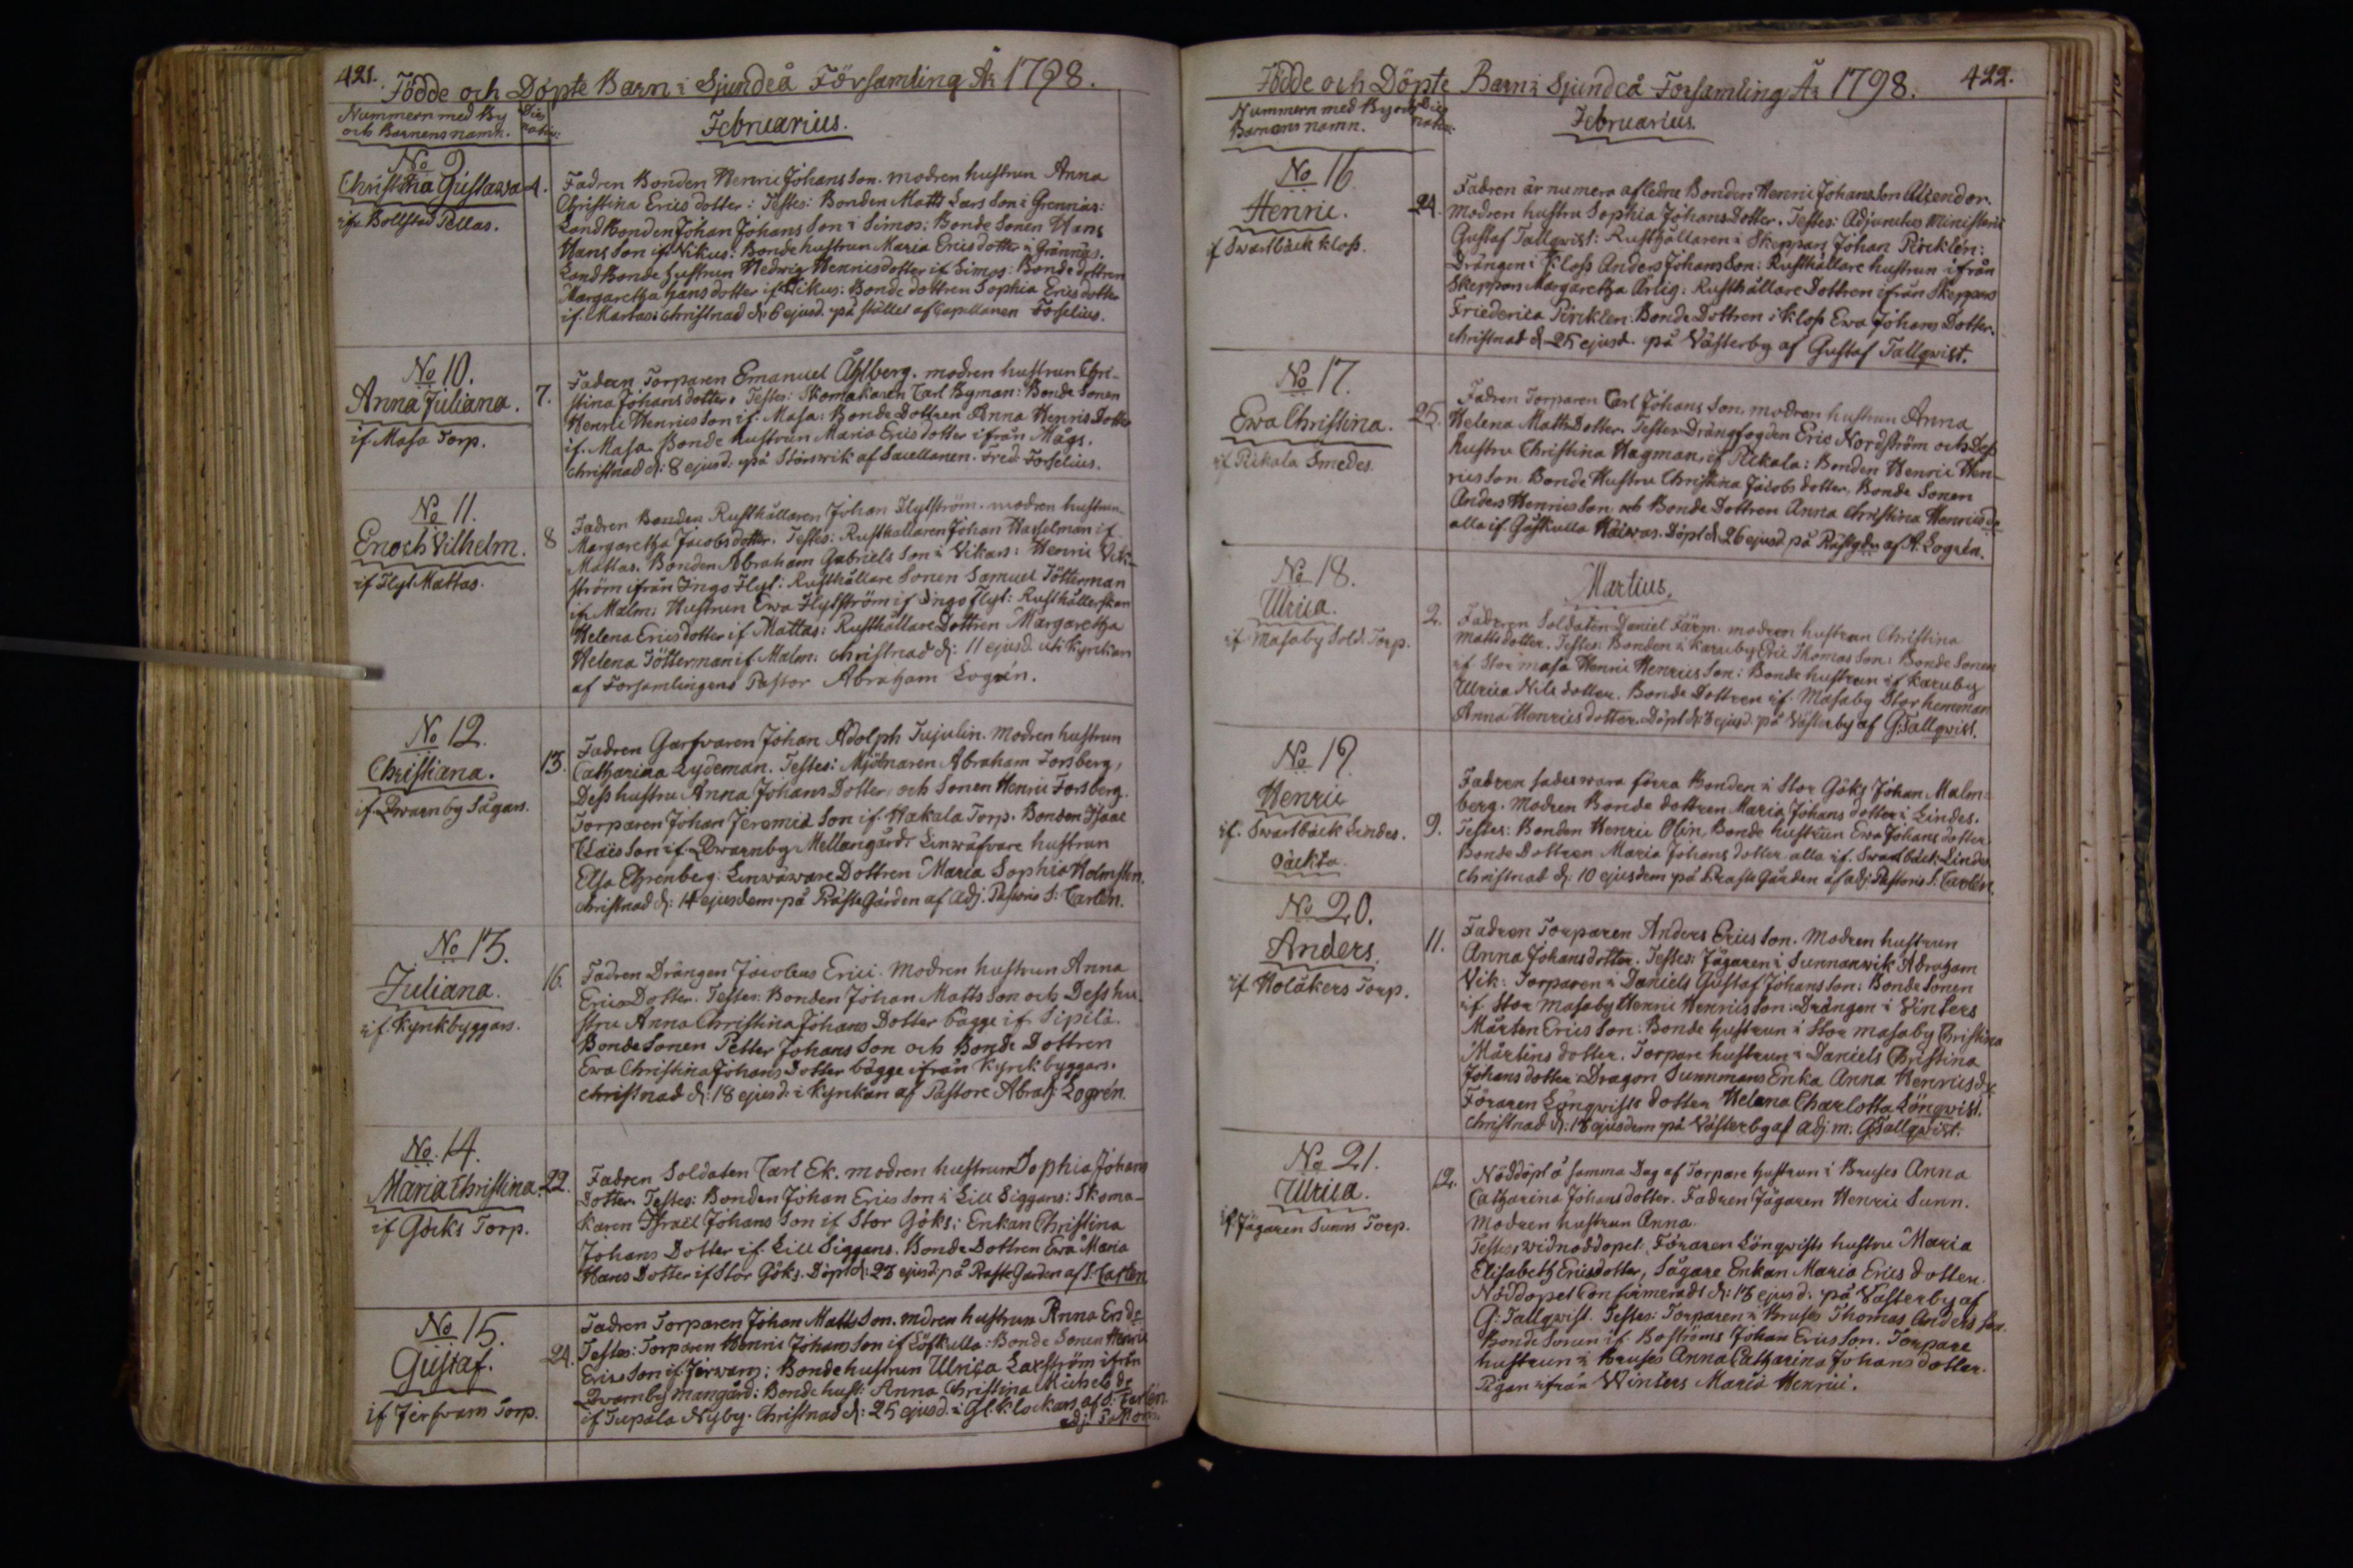 421. Födde och Döpte Barn i Sjundeå Församling År 1798.
Nummern med By
och Barnens namn.
Dies
natur:
Februarius.
No 9
Christina Gustawa
if. Bollstad Pellas.
4.
Fadren Bonden Henric Johans Son. modren hustrun Anna
Christina Erics dotter: Testes: Bonden Matts Lars Son i Grennäs:
Land Bonden Johan Johans Son i Simos: Bonde Sonen Hans
Hans Son if. Nikus: Bonde hustrun Maria Erics dotter i Grännäs.
Land Bonde hustrun Hedwig Henricsdotter if Simos: Bonde dottren
Margaretha Hans dotter if Nikus: Bonde dottren Sophia Erics dotter
if. Martas: christnad d. 6 ejusd. på stället af Capellanen Forselius.
No 10.
Anna Juliana.
if Masa Torp.
7.
Fadren Torparen Emanuel Åhlberg. modren hustrun Chri-
stina Johans dotter. Testes: Skomakaren Carl Byman: Bonde Sonen
Henric Henrics Son if. Masa: Bonde Dottren Anna Henrics Dotter
if. Masa. Bonde hustrun Maria Erics dotter ifrån Mågs.
christnad d: 8 ejusd. på Störswik af Sacellanen. Fred. Forselius.
No 11.
Enoch Vilhelm.
if Flyt Mattas.
8
Fadren Bonden Rusthållaren Johan Flytström. modren hustrun
Margaretha Jacobs dotter. Testes: Rusthållaren Johan Hasselman if
Mattas. Bonden Abraham Gabriels Son i Vikars: Henric Vik-
ström ifrån Ingo Flyt: Rusthållare Sonen Samuel Jötterman
if. Malm: Hustrun Ewa Flytström if Ingo Flyt: Rusthållerskan
Helena Ericsdotter if Mattas: Rusthållare Dottren Margaretha
Helena Jötterman if. Malm: christnad d: 11 ejusd. uti Kyrckan
af Forsamlingens Pastor Abraham Logrén.
No 12.
Christiana.
if. Qwarnby Sågars.
13.
Fadren Garfvaren Johan Adolph Jujulin. Modren hustrun
Catharina Lydeman. Testes: Mjölnaren Abraham Forsberg,
Dess hustru Anna Johans Dotter, och Sonen Henric Forsberg.
Torparen Johan Jeremiæ Son if. Hakala Torp. Bonden Isaac
Claës Son if. Qwarnby Mellangård: Linwäfvare hustrun
Elsa Ehrenberg. Linwäware Dottren Maria Sophia Holmsten.
christnad d: 14 ejusdem på Präste Gården af Adj. Pastoris S: Carlén.
No 13.
Juliana.
if. Kyrkbyggars.
16.
Fadren Drängen Jacobus Erici. Modren hustrun Anna
Erics Dotter. Testes: Bonden Johan Matts Son och Dess hu-
stru Anna Christina Johans Dotter bägge if. Sipilä.
Bonde Sonen Petter Johans Son och Bonde Dottren
Ewa Christina Johans Dotter bägge ifrån Kyrck byggars.
christnad d: 18 ejusd. i Kyrkan af Pastore Abrah: Logrén.
No. 14.
Maria Christina.
if Göcks Torp.
22.
Fadren Soldaten Carl Ek. modren hustrun Sophia Johans
Dotter. Testes: Bonden Johan Erics Son i Lill Siggans: Skoma-
karen Israël Johans Son if Stor Göks: Enkan Christina
Johans Dotter if. Lill Siggans. Bonde Dottren Ewa Maria
Hans Dotter if Stor Göks. Döpt d: 23 ejusd. på Præste Garden af S: Carlén
No 15.
Gustaf.
if Jerfvans Torp.
24.
Fadren Torparen Johan Matts Son. modren hustrun Anna Ers dr.
Testes: Torparen Henric Johans Son if Löfkulla: Bonde Sonen Henric
Erics Son if. Jerwans: Bonde hustrun Ulrica Laxström ifrån
Qwarnby mangård: Bonde hust: Anna Christina Michels dr
if Tupala Nyby. Christnad d: 25 ejusd. i Gl. klockars af S: Carlén.
adj: Pastoris.
Födde och Döpte Barn i Sjundeå Forsamling År 1798. 422.
Nummern med By och
Barnens namn.
Dies
natur.
Februarius.
No 16
Henric.
if Swartbäck kloss.
24.
Fadren är numera afledne Bonden Henric Johans Son
Modren hustru Sophia Johans Dotter. Testes: Adjunctus Ministerii
Gustaf Tallqwist: Rusthållaren i Skeppars Johan Röcklén:
Drängen i Kloss Anders Johans Son: Rusthållare hustrun ifrån
Skeppars Margaretha Arlig: Rusthållare Dottren ifrån Skeppars
Friederica Röcklen: Bonde Dottren i Kloss Ewa Johans Dotter.
christnad d. 25 ejusd. på Västerby af Gustaf Tallqwist.
No 17.
Ewa Christina.
if Pikala Smedes.
25.
Fadren Torparen Carl Johans Son, modren hustrun Anna
Helena Matts Dotter. Testes Drängfogden Eric Nordström och Dess
hustru Christina Hagman, if Pikala: Bonden Henric Hen-
rics Son, Bonde Hustru Christina Jacobs dotter, Bonde Sonen
Anders Henrics Son och Bonde Dottren Anna Christina Henrics dr
alla if. Göstkulla Döpt d. 26 ejusd på Prästgdn af A. Logrén.
Martius.
No 18.
Ulrica.
if Masaby Sold. Torp.
2.
Fadren Soldaten Daniel Färm. modren hustrun Christina
Matts dotter. Testes: Bonden i Karuby Eric Thomas Son: Bonde Sonen
if. Stor masa Henric Henrics Son: Bonde hustrun if Karuby
Ulrica Nils dotter. Bonde Dottren if. Masaby Storhemman
Anna Henrics dotter. Döpt d: 3 ejusd. på Västerby af G: Tallqwist.
No 19.
Henric
if. Swartbäck Lindes.
oäckta.
9.
Fadren sades wara förra Bonden i Stor Göks Johan Malm-
berg. Modren Bonde dottren Maria Johans dotter i Lindes.
Testes: Bonden Henric Olin, Bonde hustrun Ewa Johans dotter
Bonde Dottren Maria Johans dotter alla if. Swartbäck Lindes
christnad d: 10 ejusdem på Præste Gården af adj. Pastoris S. Carlén.
No 20.
Anders.
if Holåkers Torp.
11.
Fadren Torparen Anders Erics Son. Modren hustrun
Anna Johans dotter. Testes: Jägaren i Sunnanwik Abraham
Vik: Torparen i Daniels Gustaf Johans Son: Bonde Sonen
if Stor Masaby Henric Henrics Son: Drängen i Vinters
Mårten Erics Son: Bonde hustrun i Stor masaby Christina
Mårtins dotter. Torpare hustrun i Daniels Christina
Johans dotter: Dragon Sunnmans Enka Anna Henrics dr
Föraren Lönqwists dotter Helena Charlotta Lönqwist.
Christnad d: 18 ejusdem på Västerby af adj. m. G: Tallqwist.
No 21.
Ulrica.
if. Jägaren Sunns Torp.
12.
Nöddöpt å samma Dag af Torpare hustrun i Bruses Anna
Catharina Johans dotter. Fadren Jägaren Henric Sunn.
Modren hustrun Anna.
Testes, wid nöddopet: Föraren Lönqwists hustru Maria
Elisabeth Ericsdotter, Sågare Enkan Maria Erics dotter.
Nöddopet Confirmeradt d: 18 ejusd. på Västerby af
G: Tallqwist. Testes: Torparen i Bruses Thomas Anders Son.
Bonde Sonen if. Boströms Johan Erics Son. Torpare
hustrun i Bruses Anna Catharina Johans dotter.
Pigan ifrån Winters Maria Henrici.